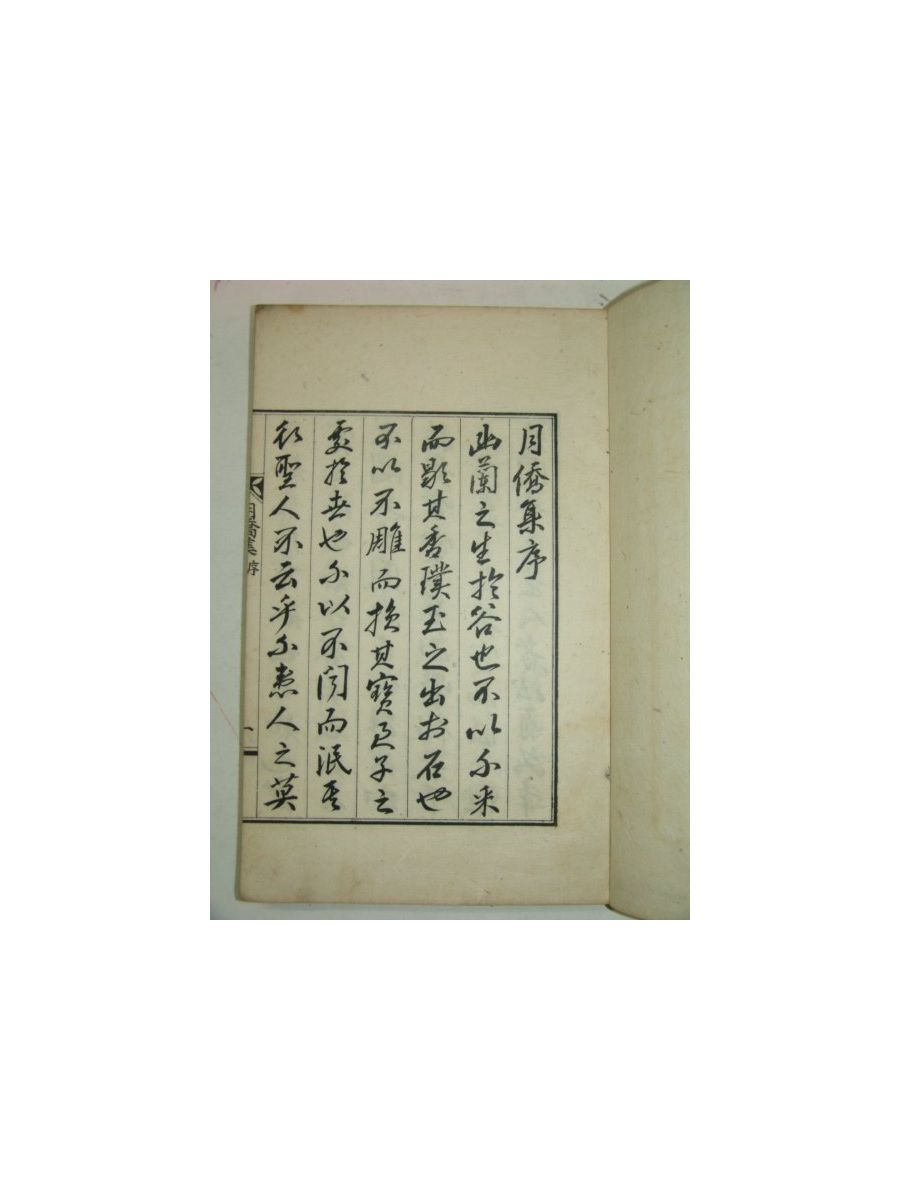 月僑集序
幽蘭之生於谷也不以不采
而歇其香璞玉之出於石也
不以不雕而損其寶君子之
處於世也不以不聞而泯其
行聖人不云乎不患人之莫
月僑集 序 一